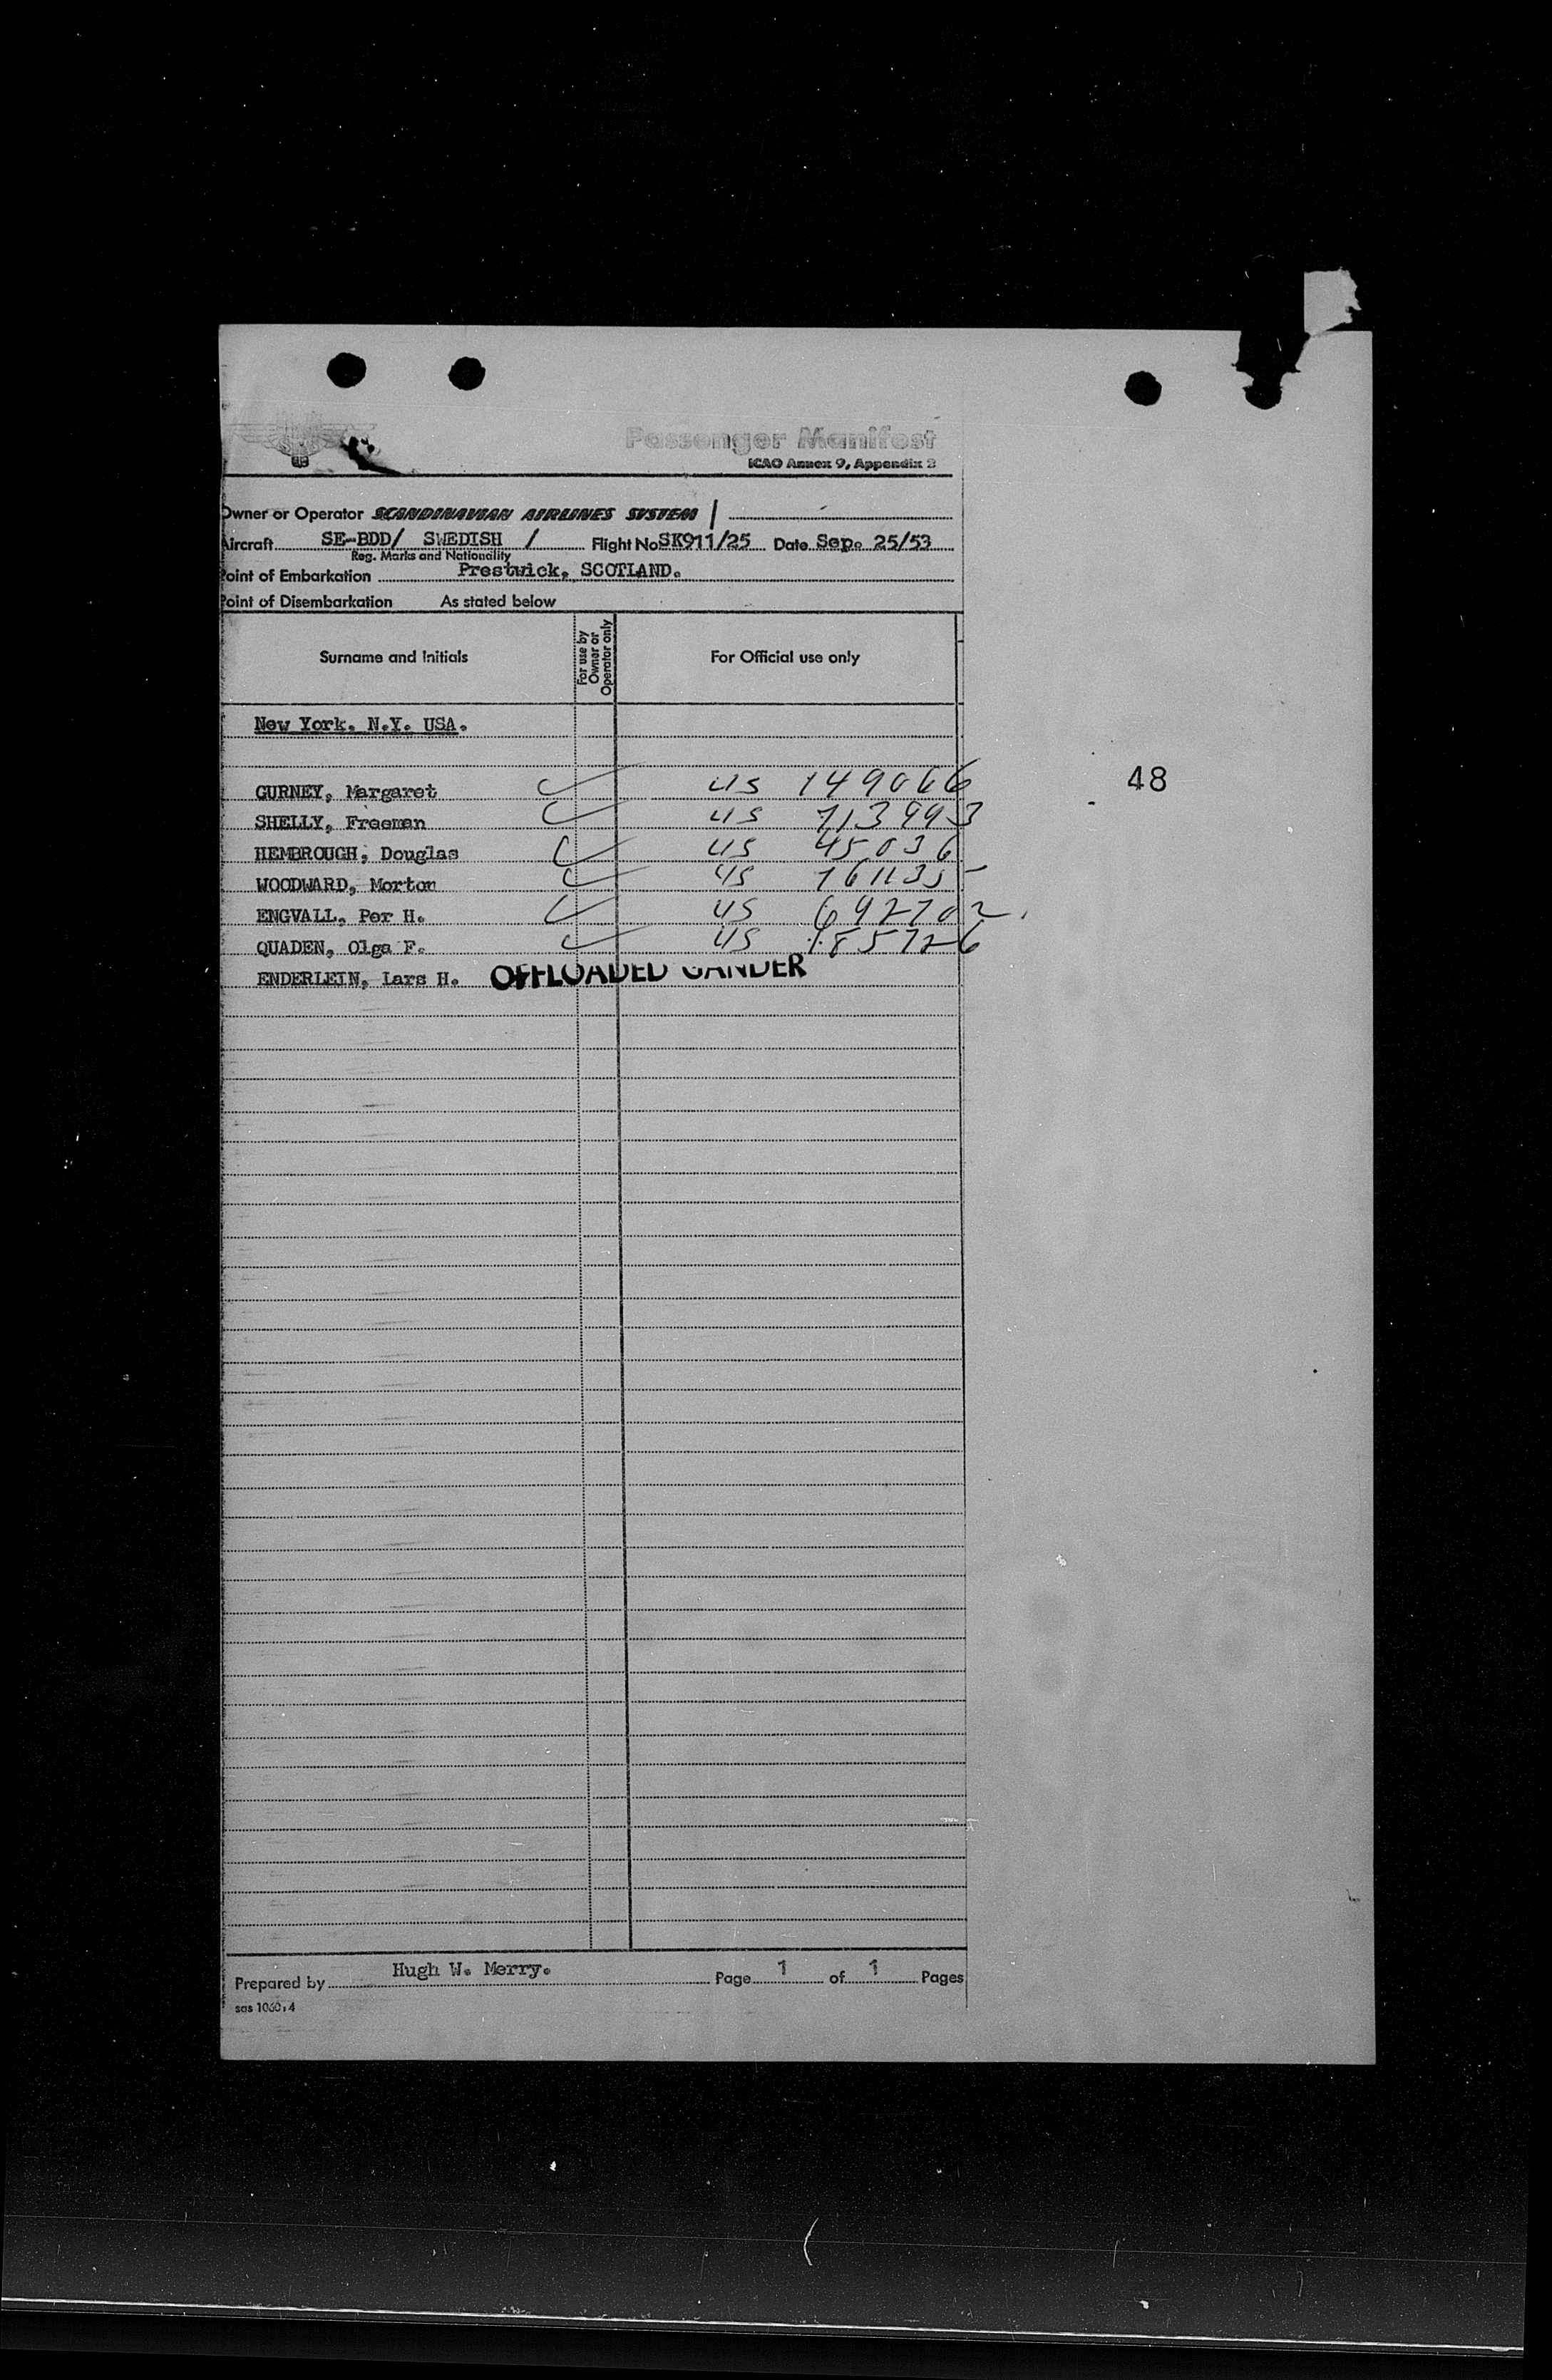 Passenger Manifest
ICAO Annex 9, Appendix 3
Owner or Operator SCANDINAVIAN AIRLINES SYSTEM /
Aircraft SE-BDD/ SWEDISH / Flight No SK911/25 Date Sep. 25/53
Reg. Marks and Nationality
Point of Embarkation Prestwick, SCOTLAND.
Point of Disembarkation As stated below
Surname and Initials For use by Owner or Operator only For Official use only
New York, N.Y. USA.
GURNEY, Margaret US 149066
48
SHELLY, Freeman US 713993
HEMBROUGH, Douglas US 45036
WOODWARD, Morton US
ENGVALL, Per H. US 692702
QUADEN, Olga F. US 185726
ENDERLEIN, Lars H. OFFLOADED GANDER
Prepared by Hugh W. Merry. Page 1 of 1 Pages
sas 1060:4